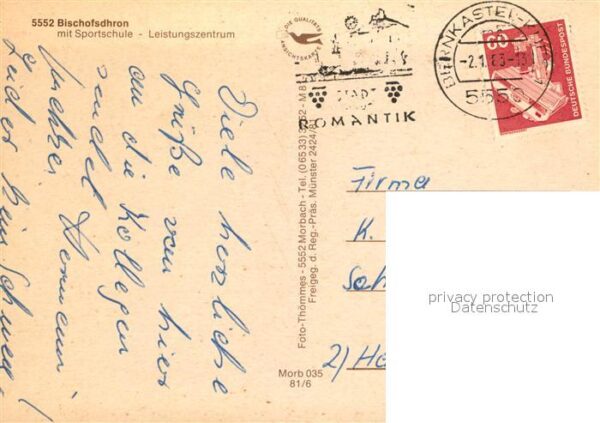 5552 Bischofsdhron
mit Sportschule - Leistungszentrum
DIE QUALITÄTS
ANSICHTSKARTE
STADT
ROMANTIK
BERNKASTEL-KUES
-2.1.83-18
5550
60
DEUTSCHE BUNDESPOST
Viele herzliche
Grüße von hier
an die Kollegen
sendet Hermann
Leider kein Schnee!
Foto-Thömmes - 5552 Morbach - Tel. (06533) 3252 - M8
Freigeg. d. Reg.-Präs. Münster 2424/81
Morb 035
81/6
Firma
K.
Soh
2) He
privacy protection
Datenschutz